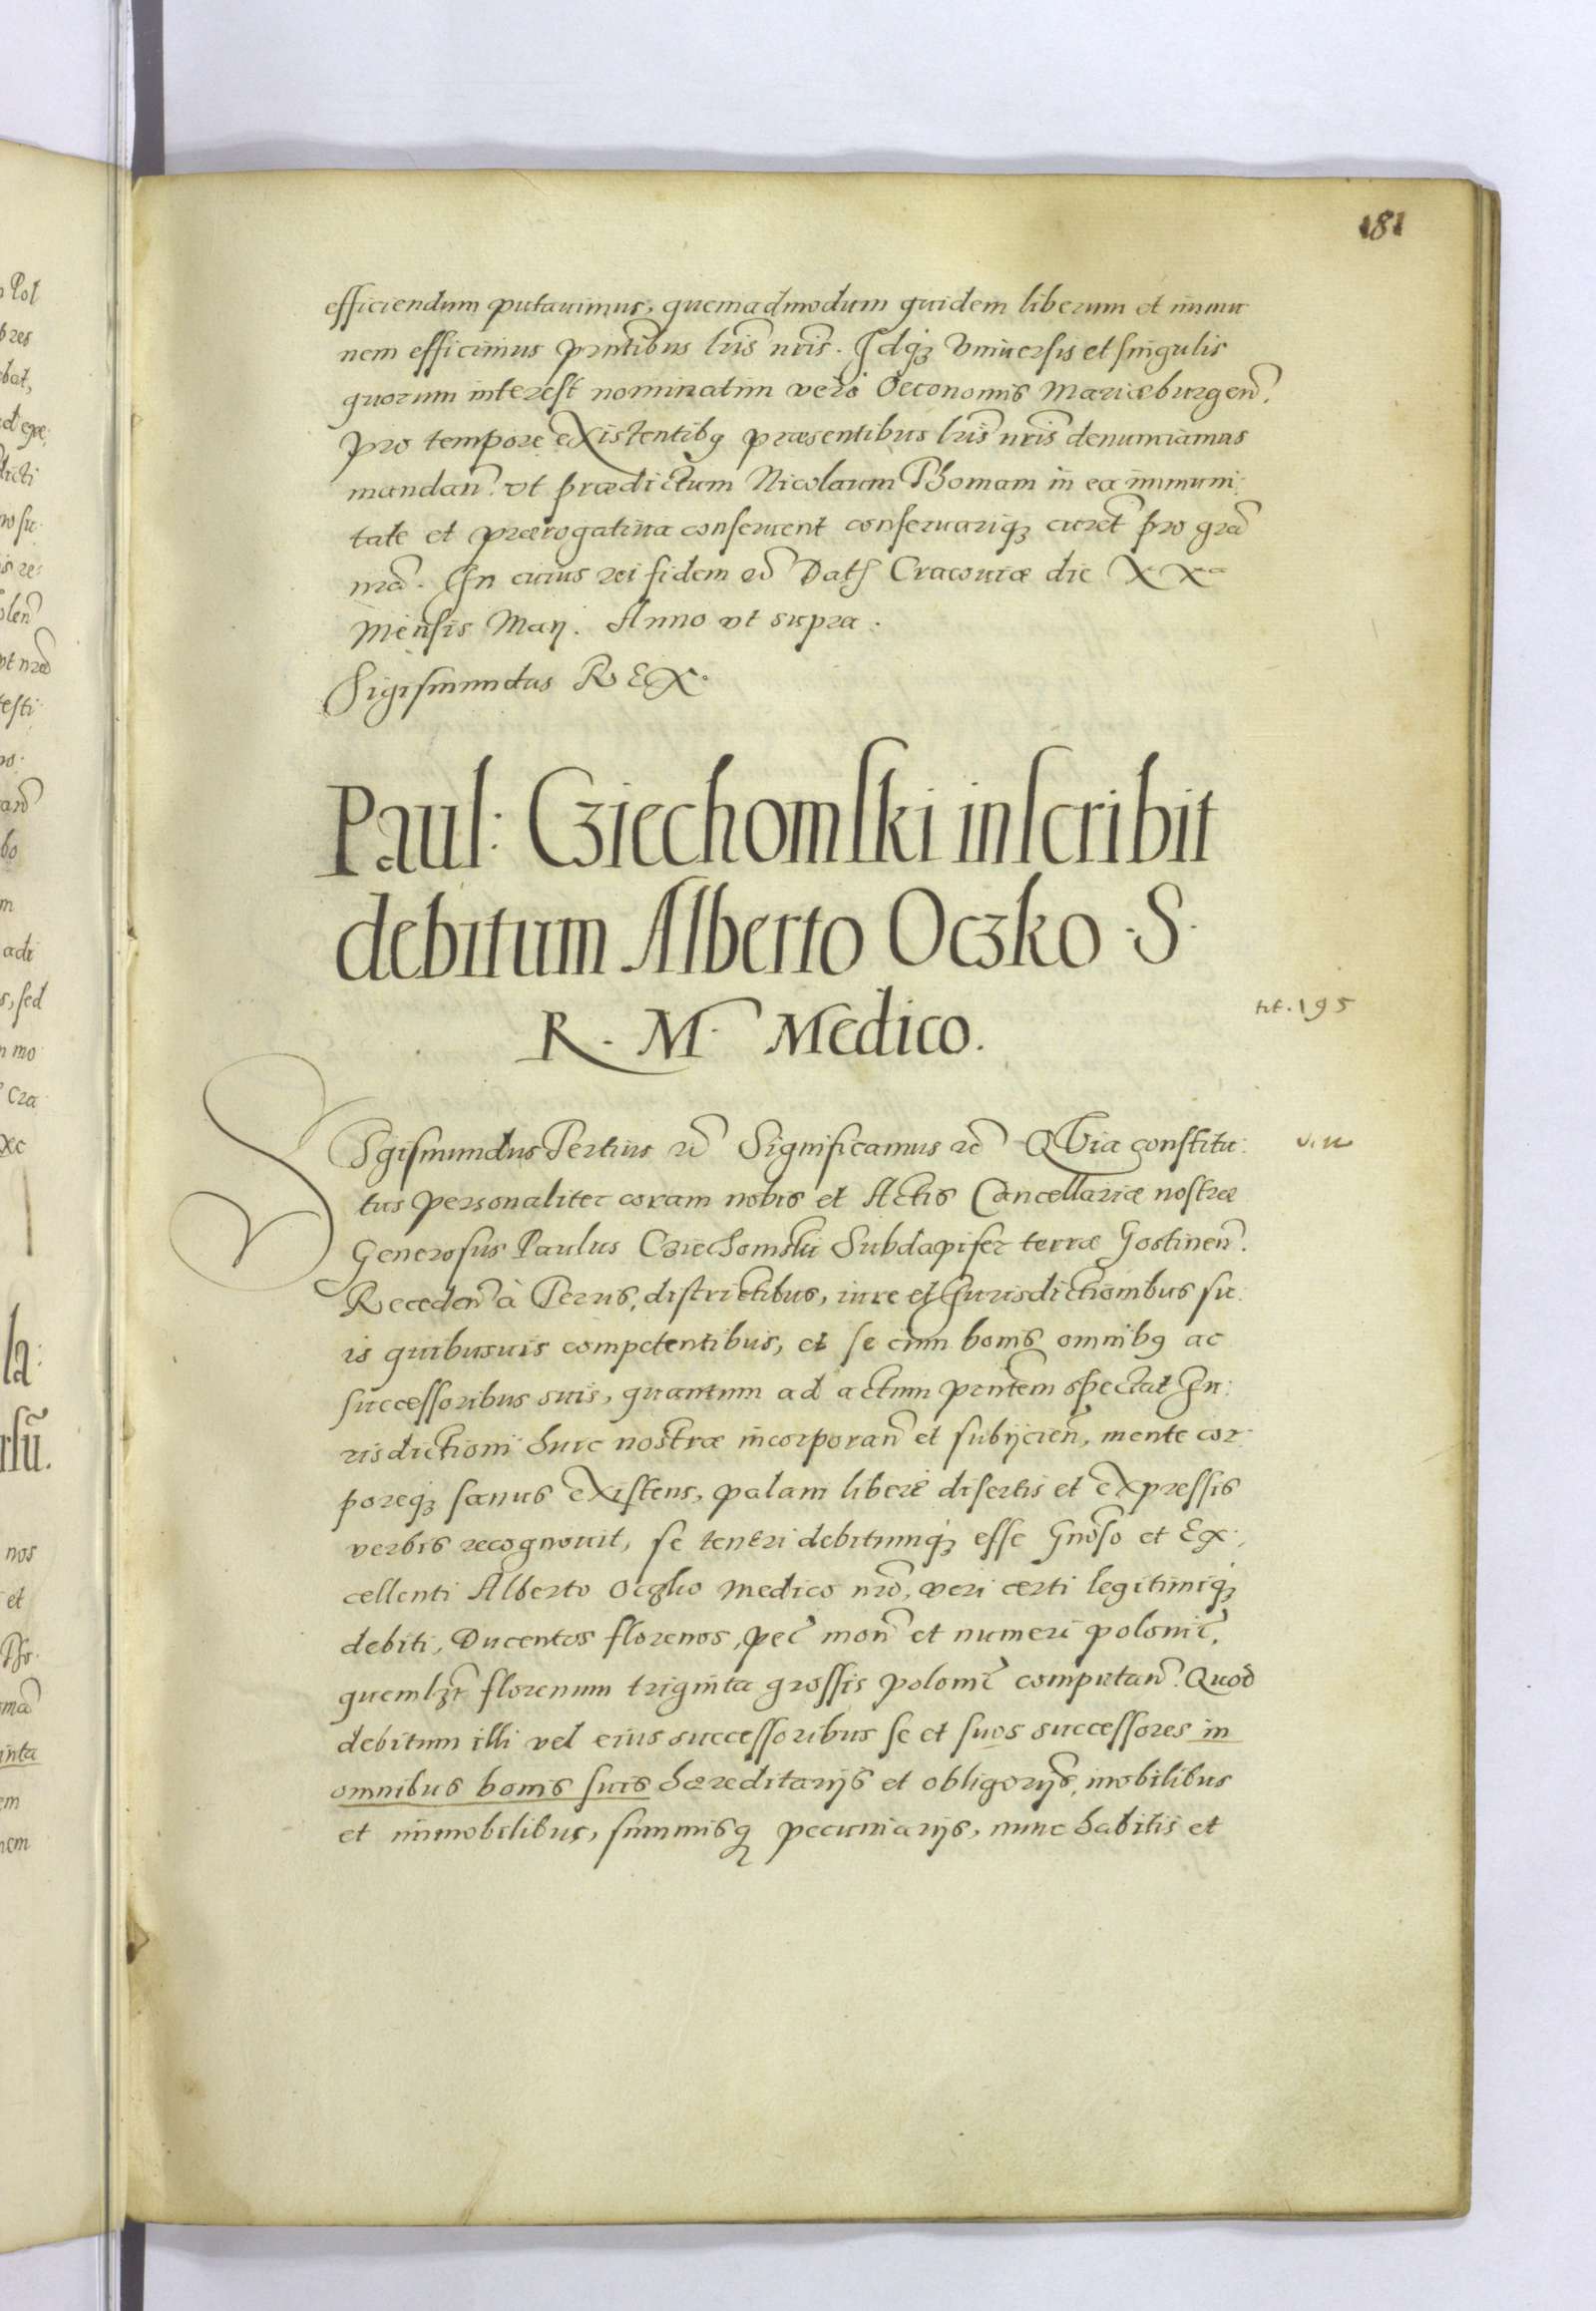 181
efficiendum putauimus, quemadmodum quidem liberum et immu
nem efficimus prñtibus lr̃is nr̃is. Idq́ꝫ Vniuersis et singulis
quorum interest nominatim verò Oeconomis Mariæburgeñ.
pro tempore existentibꝰ præsentibus lr̃is nr̃is denunciamus
mandañ. vt prædictum Nicolaum Thomam in ea immuni:
tate et prærogatiua conseruent conseruariq́ꝫ curẽt pro grã
nrã. In cuius rei fidem &c̃ Datꝭ Cracouiæ die XXa
Mensis Maij. Anno vt supra.
Sigismundus REX.
Paul: Cziechomski inscribit
debitum Alberto Oczko .S.
R. M. Medico.
tit. 195
SIgismundus Tertius &c̃ Significamus &c̃ QVia constitu:
tus personaliter coram nobis et Actis Cancellariæ nostræ
Generosus Paulus Cziechomski Subdapifer terræ Gostineñ.
Recedeñ à Terris, districtibus, iure et Iurisdictionibus su:
is quibusuis competentibus, et se cum bonis omnibꝰ ac
successoribus suis, quantum ad actum prñtem spectat Iu:
risdictioni huic nostræ incorporañ et subijcieñ, mente cor:
poreq́ꝫ sanus existens, palam liberè disertis et expressis
verbis recognouit, se teneri debitumq́ꝫ esse Gnõso et Ex:
cellenti Alberto Oczko Medico nrõ, veri certi legitimiq́ꝫ
debiti, Ducentos florenos, pec̃ moñ et numeri polonic̃,
quemlꝫt florenum triginta grossis polonic̃ computañ. Quod
debitum illi vel eius successoribus se et suos successores in
omnibus bonis suis hæreditarijs et obligorijs, mobilibus
et immobilibus, summisqꝫ pecuniarijs, nunc habitis et